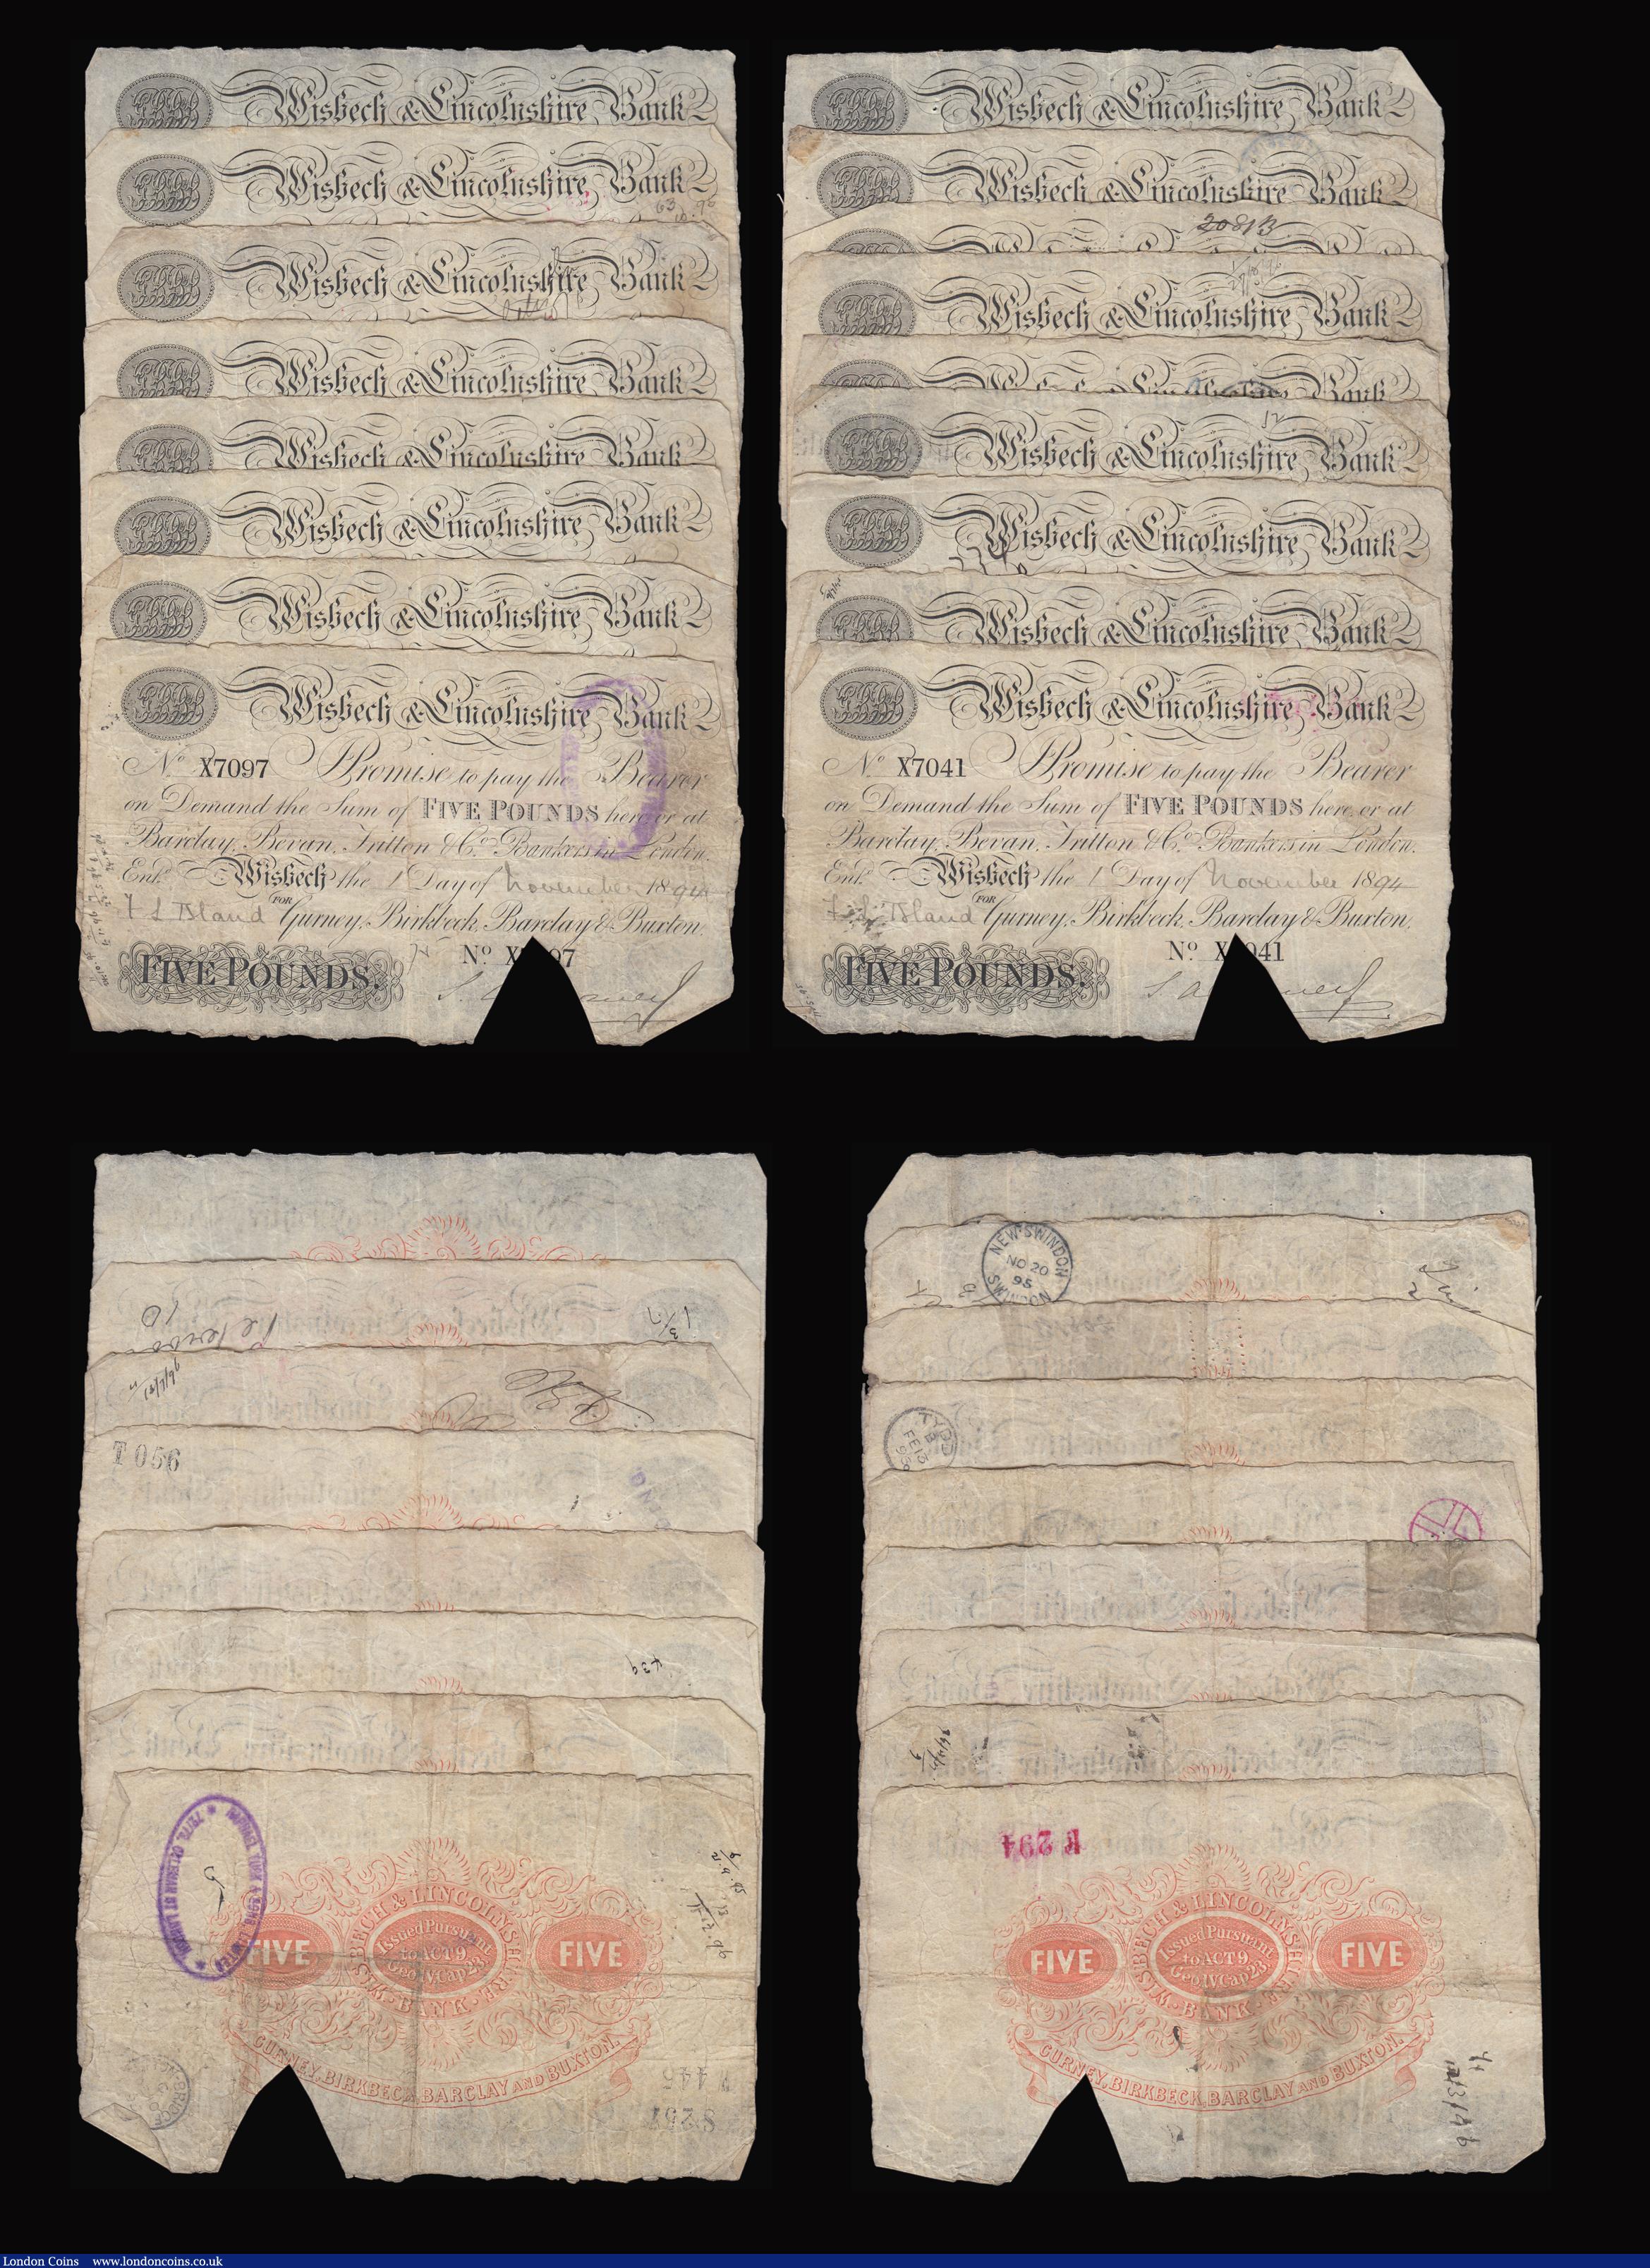 Wisbech & Lincolnshire Bank
Wisbech & Lincolnshire Bank
Wisbech & Lincolnshire Bank
Wisbech & Lincolnshire Bank
Wisbech & Lincolnshire Bank
Wisbech & Lincolnshire Bank
Wisbech & Lincolnshire Bank
Wisbech & Lincolnshire Bank
No X7097 I Promise to pay the Bearer
on Demand the Sum of FIVE POUNDS here or at
Barclay, Bevan, Tritton & Co. Bankers in London.
Entd. Wisbech the 1 Day of November 1894
FOR
Island Gurney, Birkbeck, Barclay & Buxton.
No X 97
FIVE POUNDS.
Wisbech & Lincolnshire Bank
Wisbech & Lincolnshire Bank
20813
Wisbech & Lincolnshire Bank
Wisbech & Lincolnshire Bank
12
Wisbech & Lincolnshire Bank
Wisbech & Lincolnshire Bank
Wisbech & Lincolnshire Bank
Wisbech & Lincolnshire Bank
No X7041 I Promise to pay the Bearer
on Demand the Sum of FIVE POUNDS here or at
Barclay, Bevan, Tritton & Co. Bankers in London.
Entd. Wisbech the 1 Day of November 1894
FOR
Island Gurney, Birkbeck, Barclay & Buxton.
No X 041
FIVE POUNDS.
T 056
439
WISBECH & LINCOLNSHIRE
FIVE
Issued Pursuant
to ACT 9
Geo IV Cap 23.
FIVE
BANK
GURNEY, BIRKBECK, BARCLAY AND BUXTON.
445
S 257
NEW SWINDON
NO 20
95
SWINDON
TYDD
FE 13
96
R 294
WISBECH & LINCOLNSHIRE
FIVE
Issued Pursuant
to ACT 9
Geo IV Cap 23.
FIVE
BANK
GURNEY, BIRKBECK, BARCLAY AND BUXTON.
London Coins www.londoncoins.co.uk